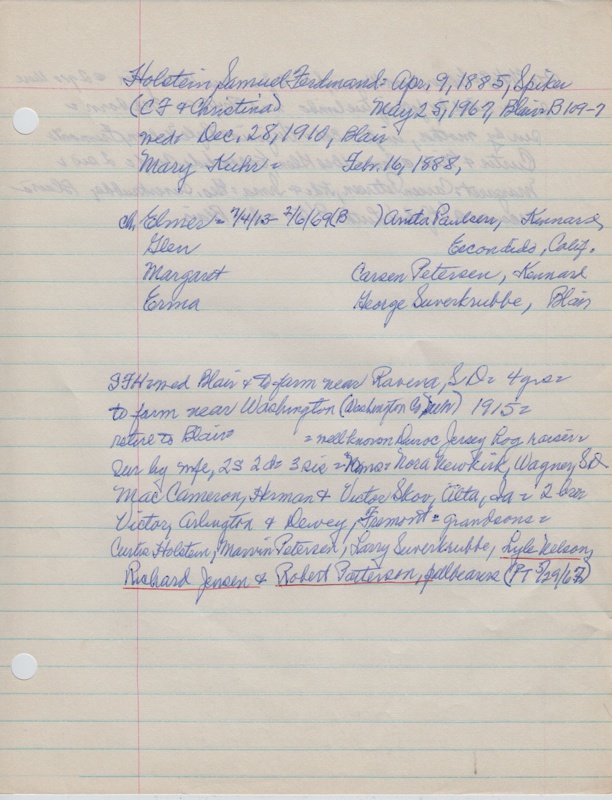 Holstein, Samuel Ferdinand = Apr. 9, 1885, Spiker
(CF & Christina) May 25, 1967, Blair B 109-7
wed = Dec. 28, 1910, Blair
Mary Kuhr = Febr. 16, 1888,
ch, Elmer = 7/4/13 - 2/6/69 (B ) Anita Paulsen, Kennard,
Glen Escondido, Calif.
Margaret Carsen Petersen, Kennard
Erma George Suverkrubbe, Blair
SFH wed Blair & to farm near Ravena, S D = 4 yrs =
to farm near Washington (Washington Co ) 1915 =
return to Blair = well known Duroc Jersey hog raiser =
sur by wife, 2s 2d = 3 sis = Nora Newkirk, Wagner, SD
Mac Cameron, Herman & Victor Skov, Alta, Ia = 2 bros
Victor, Arlington & Dewey, Fremont = grandsons =
Curtis Holstein, Marvin Petersen, Larry Suverkrubbe, Lyle Nelson,
Richard Jensen & Robert Patterson, pallbearers (PT 5/29/67)